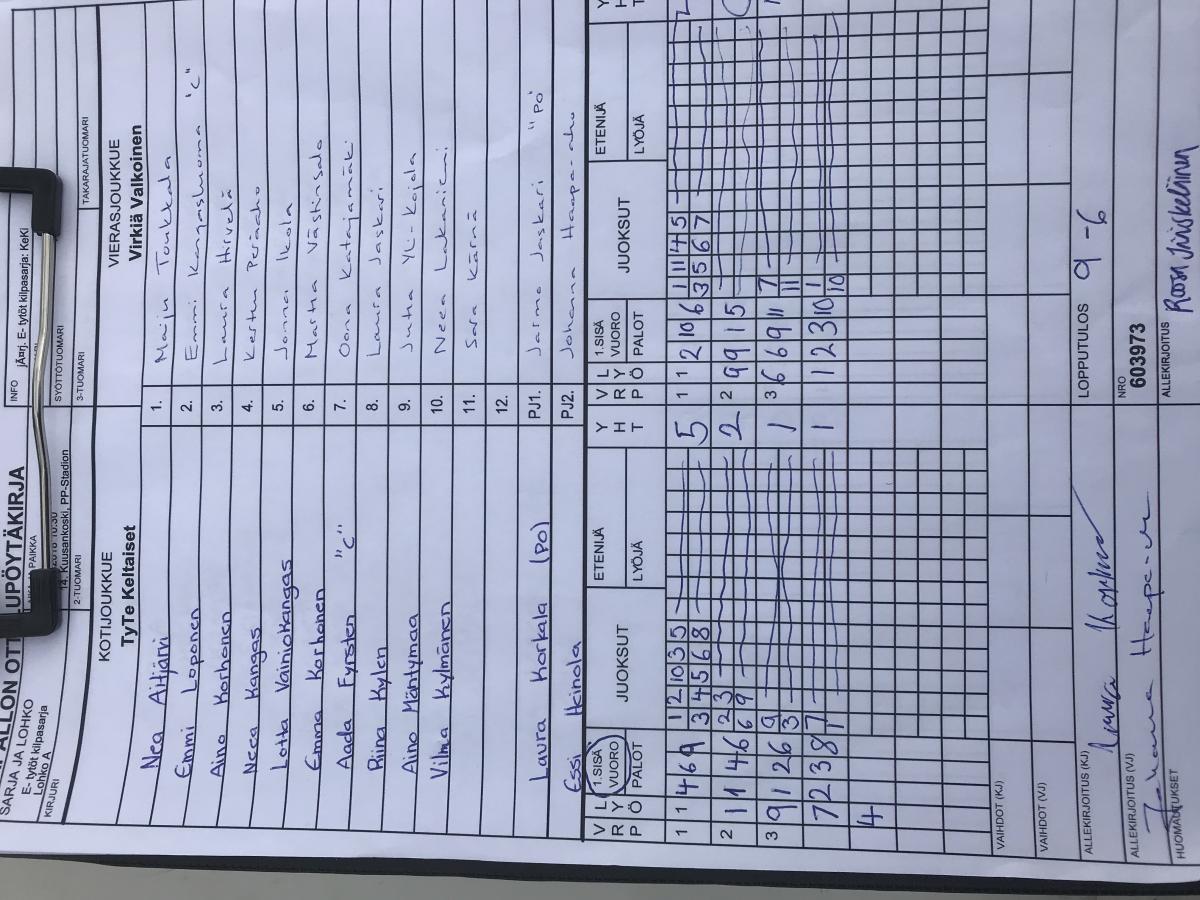 PALLON OTTELUPÖYTÄKIRJA
SARJA JA LOHKO
E- tytöt kilpasarja
Lohko A
KIRJURI
PAIKKA
14. Kuusankoski, PP-Stadion
2-TUOMARI
INFO
järj. E- tytöt kilpasarja: KeKi
SYÖTTÖTUOMARI
3-TUOMARI
TAKARAJATUOMARI
KOTIJOUKKUE
TyTe Keltaiset
VIERASJOUKKUE
Virkiä Valkoinen
Nea Äitijärvi 1. Maiju Toukkala
Emmi Loponen 2. Emmi Kangasluoma "C"
Aino Korhonen 3. Laura Hirvelä
Neea Kangas 4. Kerttu Peräaho
Lotta Vainiokangas 5. Jonna Ikola
Emma Korhonen 6. Martta Västinsalo
Aada Fyrsten "C" 7. Oona Katajamäki
Riina Kylen 8. Laura Jaskari
Aino Mäntymaa 9. Jutta Yli-Kojola
Vilma Kylmänen 10. Neea Lakaniemi
11. Sara Kärnä
12.
Laura Korkala (PO) PJ1. Jarmo Jaskari "PO"
Essi Heinola PJ2. Johanna Haapa-aho
VRP LYÖ 1.SISÄ VUORO PALOT JUOKSUT ETENIJÄ LYÖJÄ YHT VRP LYÖ 1.SISÄ VUORO PALOT JUOKSUT ETENIJÄ LYÖJÄ
1 1 4 6 9 1 2 10 3 5 5 1 1 2 10 6 1 11 4 5
3 4 5 6 8 3 5 6 7
2 11 4 6 2 3 2 2 9 9 1 5
6 9
3 9 1 2 6 9 1 3 6 6 9 11 7
3 11
7 2 3 8 7 1 1 1 2 3 10 1
1 10
4
VAIHDOT (KJ)
VAIHDOT (VJ)
ALLEKIRJOITUS (KJ)
LOPPUTULOS 9 - 6
ALLEKIRJOITUS (VJ) Johanna Haapa-aho
NRO
603973
HUOMAUTUKSET
ALLEKIRJOITUS